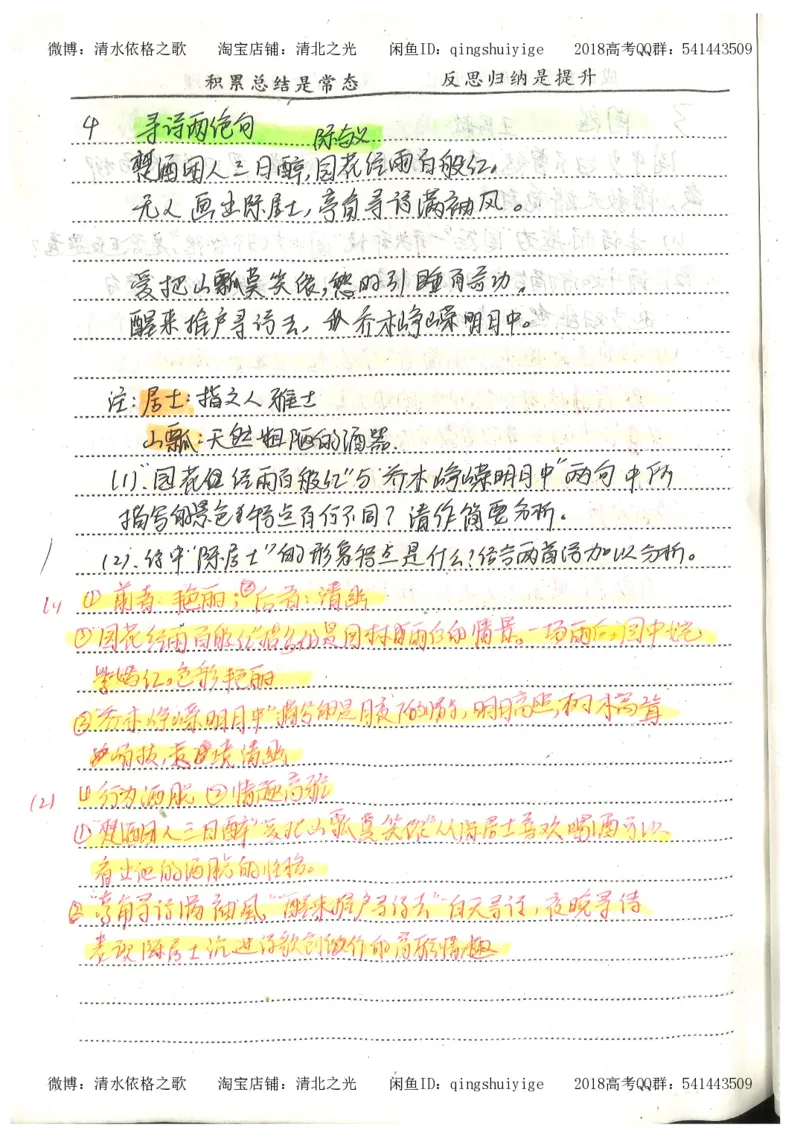 微博：清水依格之歌 淘宝店铺：清北之光 闲鱼ID：qingshuiyige 2018高考QQ群：541443509
积累总结是常态 反思归纳是提升
4 寻诗两绝句 陈与义
楚酒困人三日醉,园花经雨百般红。
无人画出陈居士,亭角寻诗满袖风。
爱把山瓢莫笑侬,愁时引睡有奇功。
醒来推户寻诗去,乔木峥嵘明月中。
注:居士:指文人雅士
山瓢:天然粗陋的酒器.
(1)."园花经雨百般红"与"乔木峥嵘明月中"两句中所
描写的景色特点有何不同?请作简要分析。
(2).诗中"陈居士"的形象特点是什么?结合两首诗加以分析。
(1) ①前者:艳丽;②后者:清幽
①"园花经雨百般红"描写的是园林雨后的情景。一场雨后,园中姹
紫嫣红。色彩艳丽
②"乔木峥嵘明月中"描写的是月夜下的情景,明月高照,树木高耸
挺拔,清幽
(2) ①行为洒脱 ②情趣高雅
①"楚酒困人三日醉""爱把山瓢莫笑侬"从陈居士喜欢喝酒可以
看出他的洒脱的性格。
②"亭角寻诗满袖风""醒来推户寻诗去"白天寻诗,夜晚寻诗
表现陈居士沉迷诗歌创作的高雅情趣
微博：清水依格之歌 淘宝店铺：清北之光 闲鱼ID：qingshuiyige 2018高考QQ群：541443509